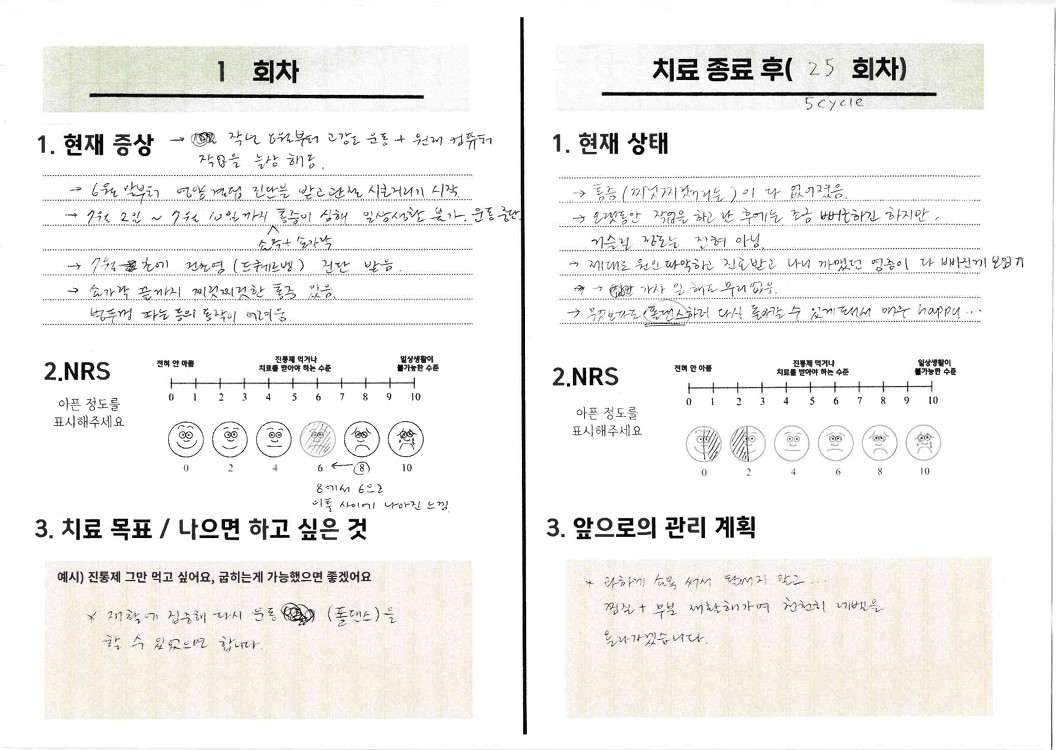 1 회차
1. 현재 증상 → 작년 8월부터 고강도 운동 + 원래 컴퓨터
작업을 늘상 해옴.
→ 6월 말부터 염증 진단을 받고 관절 시큰거리기 시작
→ 7월 2일 ~ 7월 10일까지 통증이 심해 일상생활 불가. 운동 중단
손목 + 손가락
→ 7월 초에 건초염 (드퀘르벵) 진단 받음.
→ 손가락 끝까지 찌릿찌릿한 통증 있음.
등의 동작이 어려움.
2.NRS
아픈 정도를
표시해주세요
전혀 안 아픔
진통제 먹거나
치료를 받아야 하는 수준
일상생활이
불가능한 수준
0 1 2 3 4 5 6 7 8 9 10
0 2 4 6 ← 8 10
8에서 6으로
이틀 사이에 나아진 느낌.
3. 치료 목표 / 나으면 하고 싶은 것
예시) 진통제 그만 먹고 싶어요, 굽히는게 가능했으면 좋겠어요
* 재활에 집중해 다시 운동 (폴댄스)을
할 수 있었으면 합니다.
치료 종료 후( 25 회차)
5cycle
1. 현재 상태
→ 통증 (찌릿찌릿거리는) 이 다 없어졌음.
→ 오랫동안 작업을 하고 난 후에는 조금 뻐근하긴 하지만,
거슬릴 정도는 전혀 아님.
→ 제대로 원인 파악하고 진료받고 나니 까맸던 염증이 다 빠진게 보였기
→ 가사 일 해도 무리 없음.
→ 무엇보다도 (폴댄스)하러 다시 돌아갈 수 있게 돼서 매우 happy...
2.NRS
아픈 정도를
표시해주세요
전혀 안 아픔
진통제 먹거나
치료를 받아야 하는 수준
일상생활이
불가능한 수준
0 1 2 3 4 5 6 7 8 9 10
0 2 4 6 8 10
3. 앞으로의 관리 계획
* 과하게 손목 써서 말고...
찜질 + 부분 재활해가며 천천히 레벨을
올라가겠습니다.